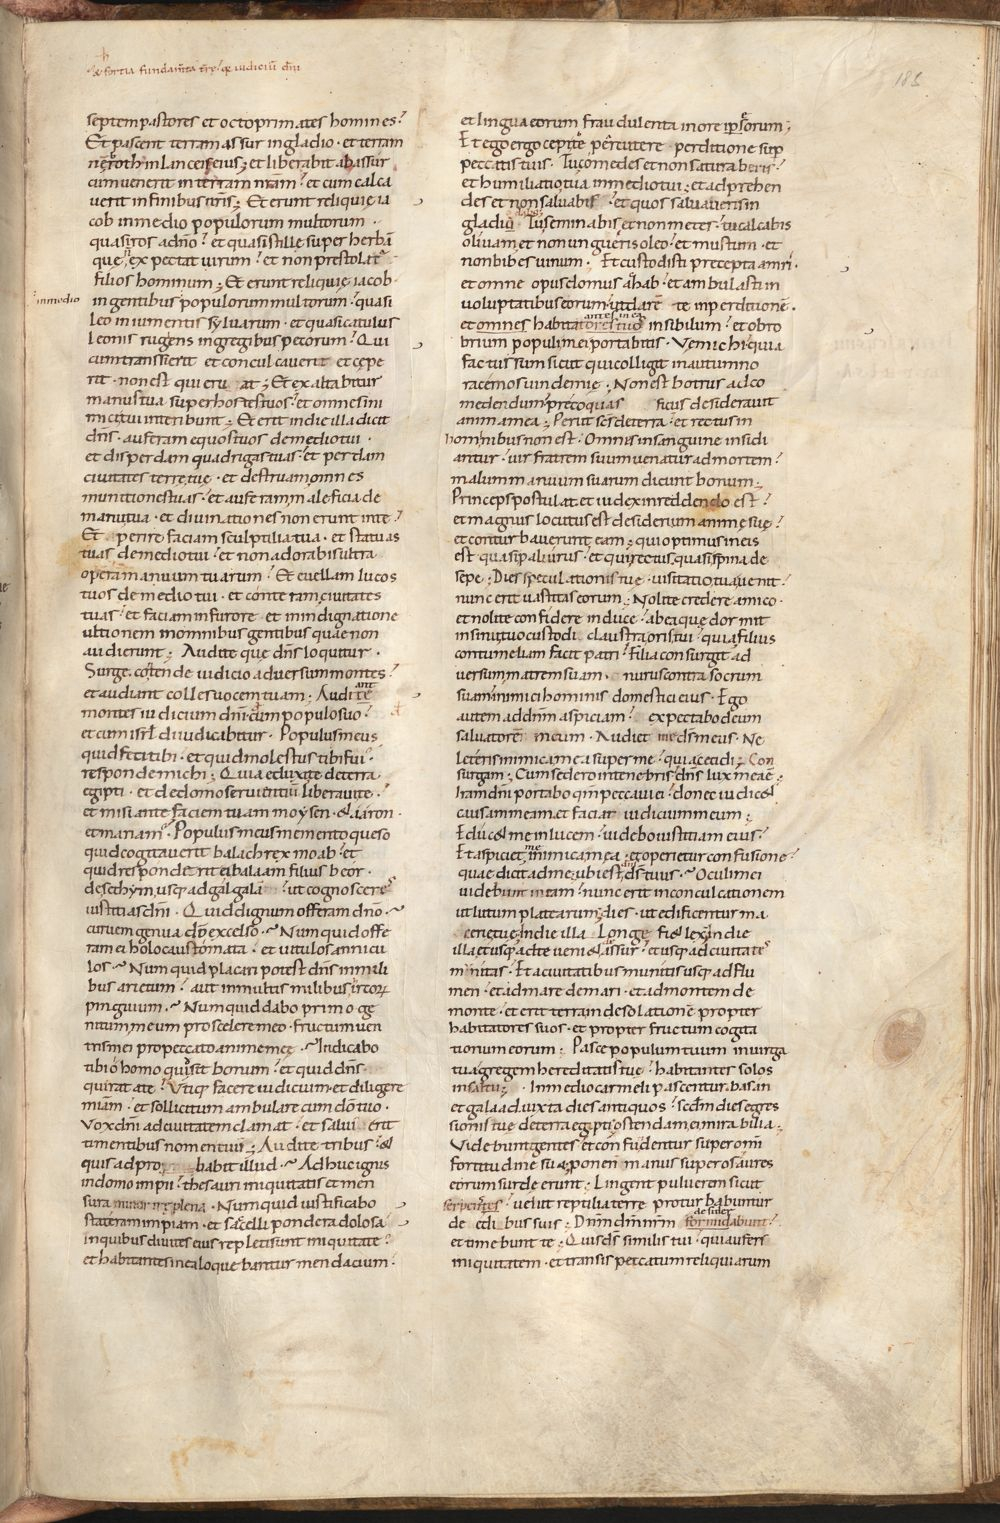 & fortia fundam̄ta tr̄ę. q̄ iudiciū dn̄i
185
septem pastores et octo primates homines.
Et pascent terram assur in gladio. et terram
nēroth in lanceis eius; et liberabit ab assur
cum venerit in terram nr̄am. et cum calca
verit in finibus nr̄is; Et erunt reliquię ia
cob in medio populorum multorum.
quasi ros a dn̄o. et quasi stillę super herbā
quę expectat virum. et non prestolat̄
filios hominum; Et erunt reliquię iacob.
in medio
in gentibus populorum multorum. quasi
leo in iumentis sylvarum. et quasi catulus
leonis rugens in gregibus pecorum. Qui
cum transierit et conculcaverit et cepe
rit. non est qui eru at; Et exaltabitur
manus tua super hostes tuos. et omnes ini
mici tui interibunt; Et erit in die illa dicit
dn̄s. auferam equos tuos de medio tui.
et disperdam quadrigas tuas. et perdam
civitates terrę tuę. et destruam omnes
munitiones tuas. et auferam maleficia de
manu tua. et divinationes non erunt in te.
Et perire faciam sculptilia tua. et statuas
tuas de medio tui. et non adorabis ultra
opera manuum tuarum. Et evellam lucos
tuos de medio tui. et conteram civitates
tuas. et faciam in furore et in indignatione
ultionem in omnibus gentibus quae non
audierunt; Audite quę dn̄s loquitur.
Surge, contende iudicio adversum montes.
et audiant colles vocem tuam; Audite
montes iudicium dn̄i cum populo suo.
et cum isrł diiudicabitur. Populus meus
quid feci tibi. et quid molestus tibi fui.
responde michi; Quia eduxi te de terra
egipti. et de domo servientiū liberavi te.
et misi ante faciem tuam moysen. & aaron.
et mariam. Populus meus memento queso
quid cogitaverit balach rex moab. et
quid responderit ei balaam filius beor.
de sethym, usq; ad galgalā. ut cognosceres
iustitias dn̄i. Quid dignum offeram dn̄o.
curvem genua dō excelso. Numquid offe
ram ei holocaustomata. et vitulos annicu
los. Numquid placari potest dn̄s in mili
bus arietum. aut in multis milibus ircorꝝ
pinguium. Numquid dabo primoge
nitum meum pro scelere meo. fructum ven
tris mei pro peccato animę meę. Indicabo
tibi ō homo quid sit bonum. et quid dn̄s
quirat a te. Utiq; facere iudicium. et diligere
miām. et sollicitum ambulare cum dō tuo.
Vox dn̄i ad civitatem clamat. et salus erit
timentibus nomen tuū; Audite tribus. &
quis adpro babit illud. Adhuc ignis
in domo impii. thesauri iniquitatis et men
sura minor irę plena. Numquid iustificabo
stateram impiam. et sacelli pondera dolosa
in quibus divites eius repleti sunt iniquitate.
et habitantes in ea loquebantur mendacium.
et lingua eorum fraudulenta in ore ipsorum;
Et ego ergo cepi te percutere perditione sup
peccatis tuis. Tu comedes et non saturaberis.
et humiliatio tua in medio tui; et adprehen
des et non salvabis et quos salvaveris in
gladiū dabo. Tu seminabis et non metes. tu calcabis
olivam et non ungueris oleo. et mustum. et
non bibes vinum. Et custodisti precepta amri.
et omne opus domus ahab. et ambulasti in
voluptatibus eorum, ut darē te in perditionē.
et omnes habitatores tuos in sibilum. et obro
antes in ea
brium populi mei portabitis. Ve michi quia
factus sum sicut qui colligit in autumno
racemos vindemię; Non est botrus ad co
medendum. precoquas ficus desideravit
anima mea; Periit sc̄s de terra. et rectus in
hominibus non est. Omnis in sanguine insidi
antur. vir fratrem suum venatur ad mortem.
malum manuum suarum dicunt bonum;
Princeps postulat. et iudex in reddendo est.
et magnus locutus est desiderium animę suę.
et conturbaverunt eam; qui optimus in eis
est quasi paliurus. et qui rectus, quasi spina de
sepe; Dies speculationis tuę. visitatio tua venit.
nunc erit vastitas eorum; Nolite credere amico.
et nolite confidere in duce. ab ea que dormit
in sinu tuo custodi claustra oris tui. quia filius
contumeliam facit patri. Filia consurgit ad
versum matrem suam. nurus contra socrum
suam, inimici hominis domestici eius. Ego
autem ad dn̄m aspiciam. expectabo deum
salvatorē meum. Audiet me ds̄ meus. Ne
leteris inimica mea super me. quia cecidi; Con
surgam; Cum sedero in tenebris dn̄s lux mea ē;
Iram dn̄i portabo qm̄ peccavi ei. donec iudic&
causam meam. et faciat iudicium meum;
Educ& me in lucem. videbo iustitiam eius.
Et aspiciet me inimica mea. et operietur confusione.
quae dicit ad me. ubi est dn̄s ds̄ tuus. Oculi mei
videbunt in eam. nunc erit in conculcationem
ut lutum platearum; dies. ut edificentur ma
cerię tuę, in die illa Longe fi& lex, in die
illa, et usq; ad te veni& assur. et usq; ad civitates
munitas. Et a civitatibus munitis usq; ad flu
men. et ad mare de mari. et ad montem de
monte. et erit terra in desolationē propter
habitatores suos. et propter fructum cogita
tionum eorum; Pasce populum tuum in virga
tua, gregem hereditatis tuę. habitantes solos
in saltu; In medio carmeli pascentur basan
et galaad iuxta dies antiquos. sec̄dm dies egres
sionis tuę de terra egipti, ostendam ei mirabilia;
Videbunt gentes et confundentur super om̄i
fortitudine sua; ponent manus super os, aures
eorum surdę erunt; Lingent pulverem sicut
serpentes. velut reptilia terrę proturbabuntur
de ędibus suis; Dn̄m dm̄ nr̄m formidabunt.
desider
et timebunt te; Quis ds̄ similis tui. qui aufers
iniquitatem. et transis peccatum reliquiarum